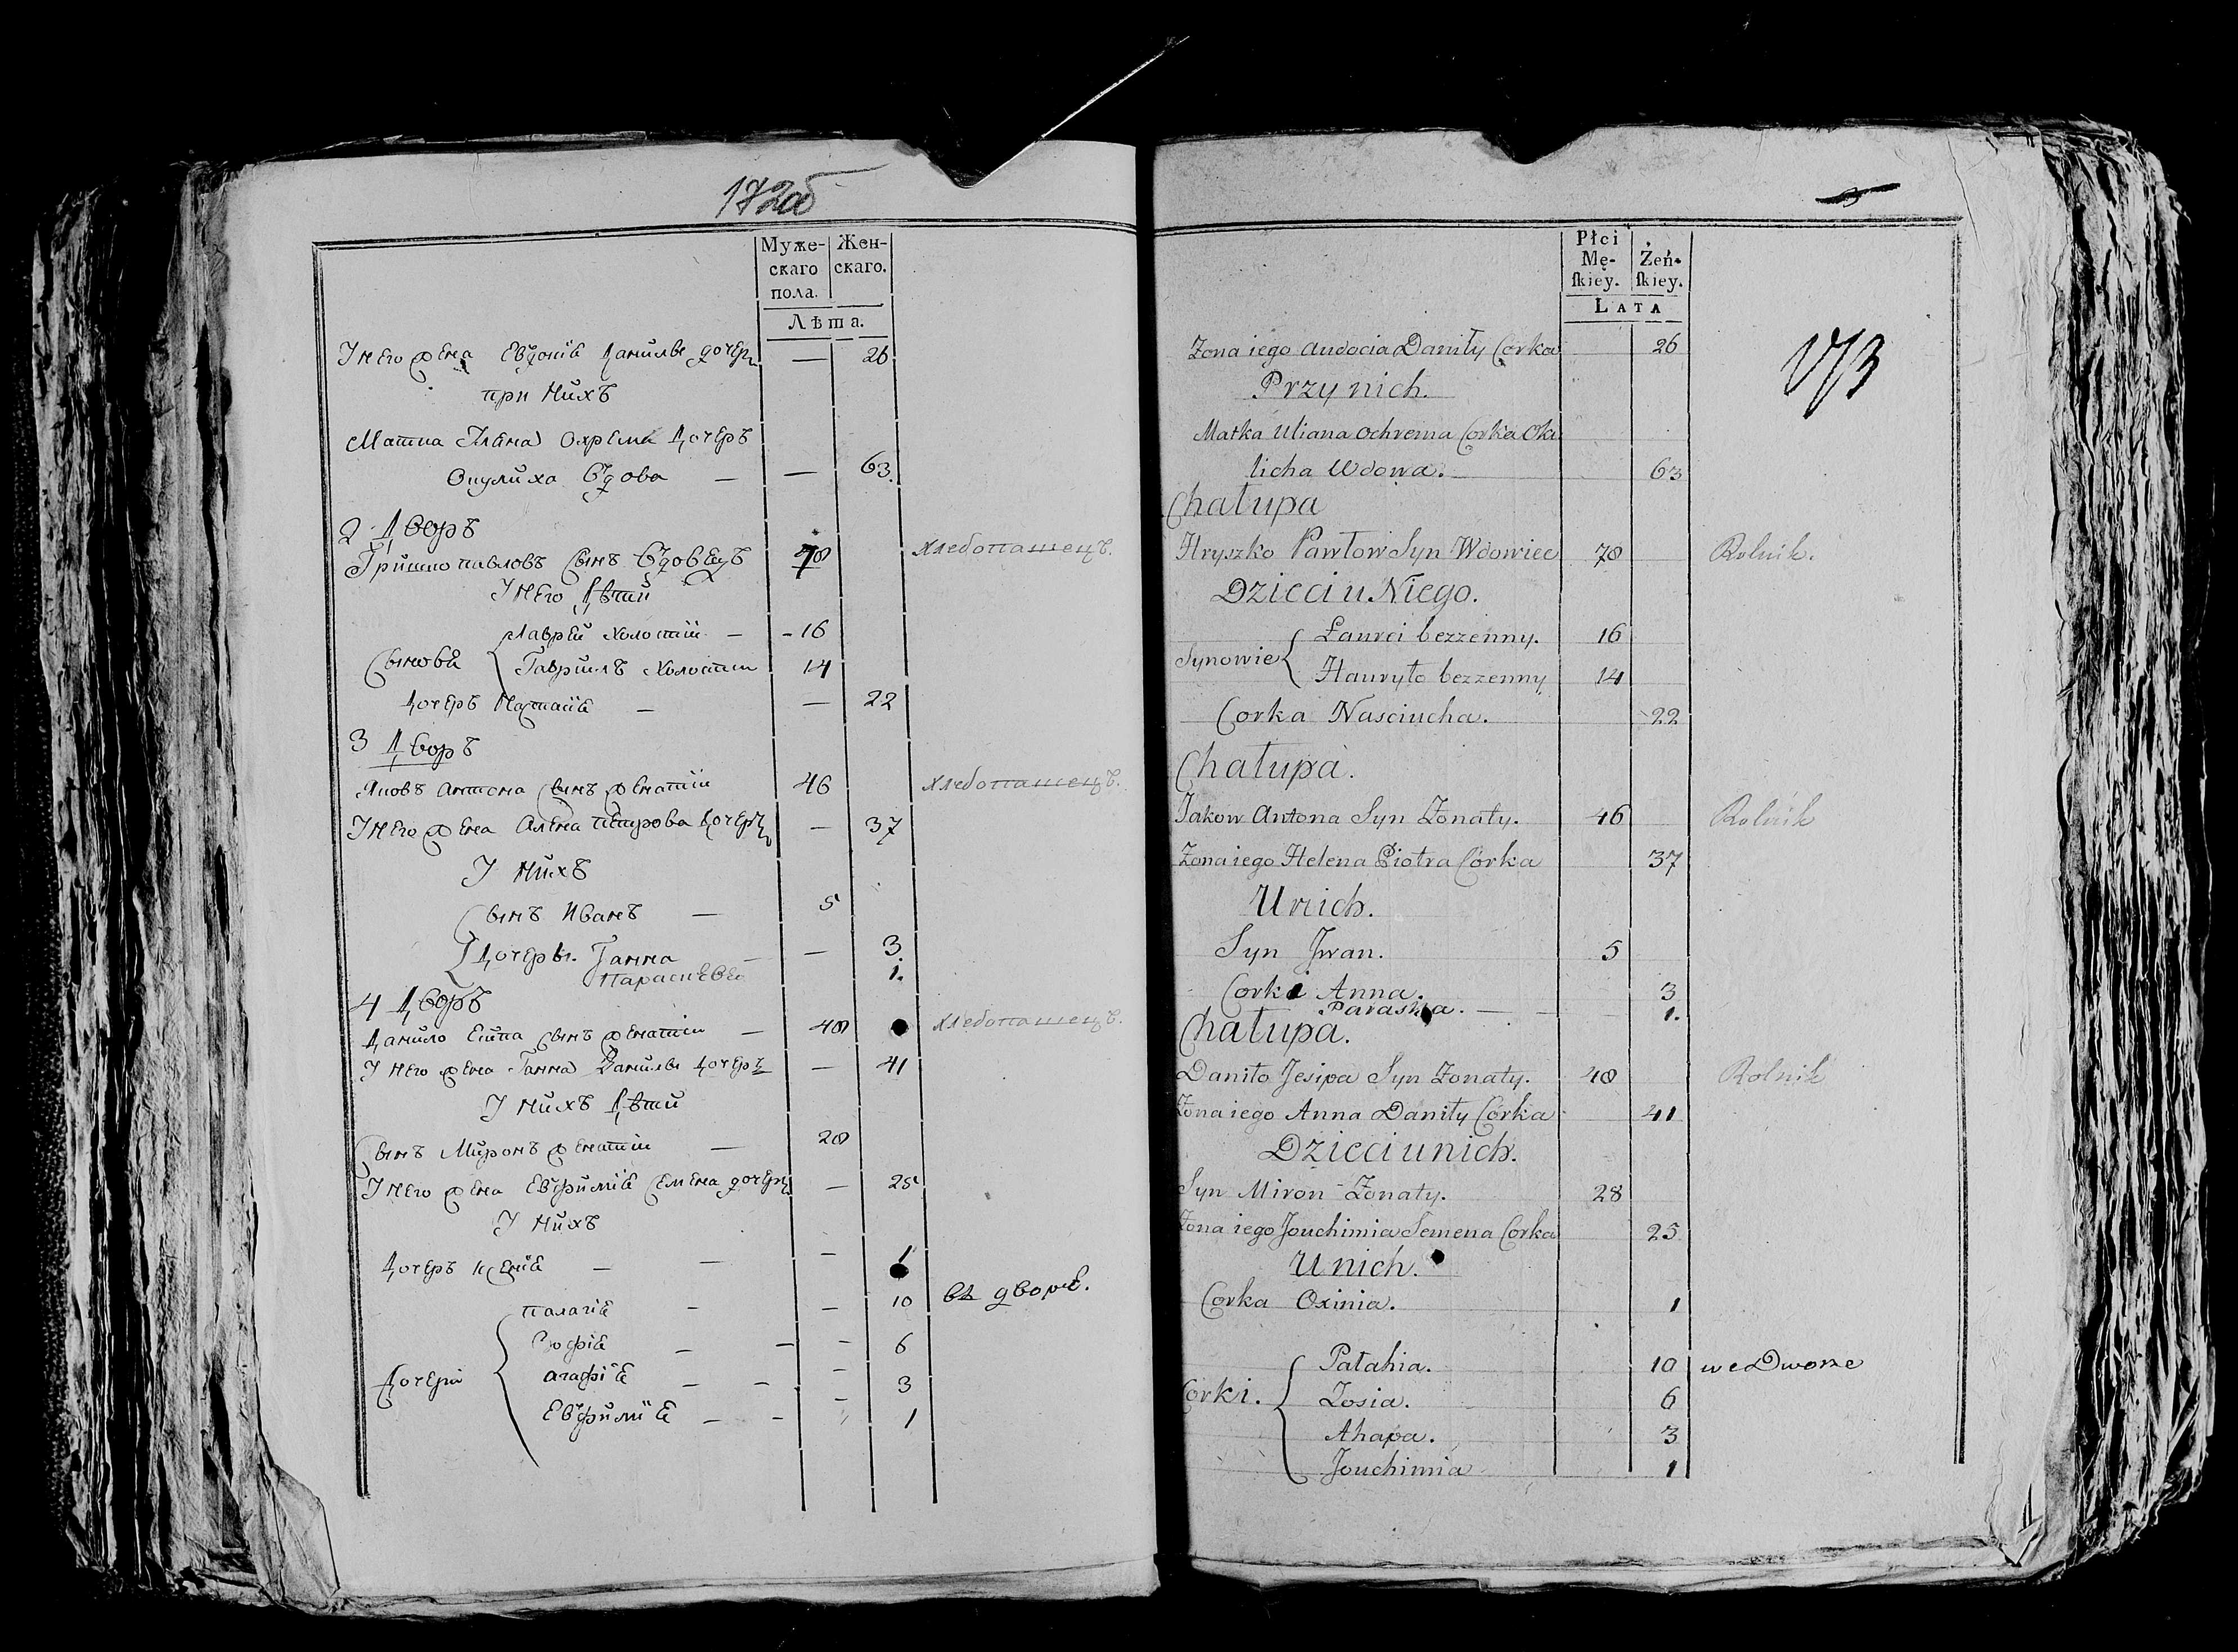 172об
Муже-
скаго
пола.
Жен-
скаго.
Лѣта.
У него жена Евдокіа Данилы дочерь — 26
при нихъ
Матка Уліана Охрема Дочеръ
Окулиха Вдова — — 63.
2 Дворъ
Гришко павловъ Сынъ Вдовецъ 78 хлебопашецъ.
У него Дѣти
Сынови
Лаврей холостій — 16
Гаврилъ холостій 14
Дочеръ Настасіа — — 22
3 Дворъ
Яковъ Антона Сынъ женатій 46 хлебопашецъ.
У него жена Алена петрова Дочерь — 37
У нихъ
Сынъ Иванъ — 5
Дочеры. Ганна — — 3.
Параскевіа 1.
4 Дворъ
Данило Есипа Сынъ женатій — 48 хлебопашецъ.
У него жена Ганна Данилы Дочерь — 41
У нихъ Дѣти
Сынъ Миронъ женатій — 28
У него жена Евфиміа Семена дочерь — 25
У нихъ
Дочеръ Ксеніа — — — 1
Дочери
Палагіа — — 10 въ дворѣ.
Софіа — — — 6
Агафіа — — — 3
Евфиміа — — 1
Płci
Mę-
ſkiey.
Żeń-
ſkiey.
LATA
173
Zona iego Audocia Daniły Corka 26
Przy nich.
Matka Uliana Ochrema Corka Oku
licha Wdowa. 63
Chałupa
Hryszko Pawłow Syn Wdowiec 78 Rolnik.
Dzieci u Niego.
Synowie
Ławrei bezzenny. 16
Hauryło bezzenny 14
Corka Nasciucha. 22
Chałupa.
Jakow Antona Syn Zonaty. 46 Rolnik
Zona iego Helena Piotra Córka 37
U nich.
Syn Jwan. 5
Corki Anna. 3
Paraska. — — 1.
Chałupa.
Daniło Jesipa Syn Zonaty. 48 Rolnik
Zona iego Anna Daniły Córka 41
Dzieci u nich.
Syn Miron Zonaty. 28
Zona iego Jouchimia Semena Corka 25
U nich.
Corka Oxinia. 1
Corki.
Pałahia. 10 we Dworze
Zosia. 6
Ahapa. 3
Jouchimia 1